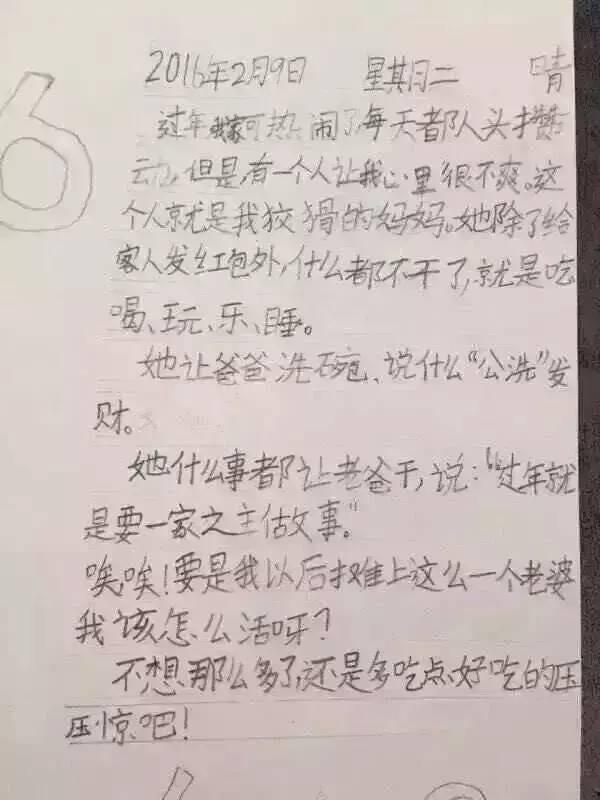 2016年2月9日 星期二 晴
过年我家可热闹了,每天都人头攒
动,但是,有一个人让我心里很不爽。这
个人就是我狡猾的妈妈。她除了给
客人发红包外,什么都不干了,就是吃
喝、玩、乐、睡。
她让爸爸洗碗、说什么“公洗”发
财。
她什么事都让老爸干,说:“过年就
是要一家之主做事。”
唉,唉!要是我以后摊上这么一个老婆
我该怎么活呀?
不想那么多了,还是多吃点好吃的压
压惊吧!
6